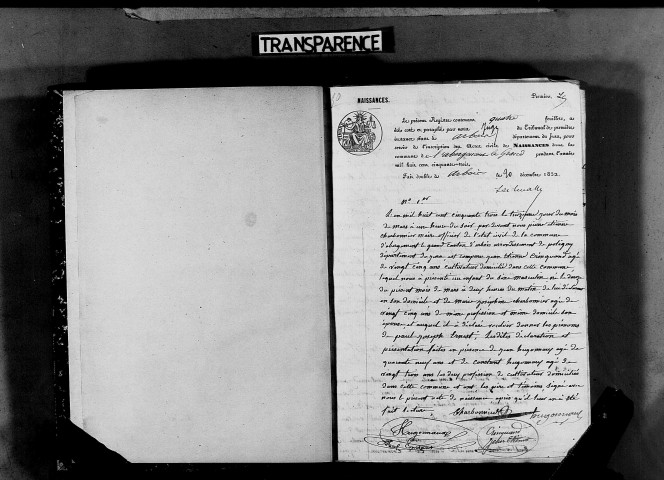 TRANSPARENCE
NAISSANCES.
Premier
Le présent Registre contenant quatre feuillets, a
été coté et paraphé par nous Juge au Tribunal de première
instance séant à arbois département du Jura, pour
servir à l'inscription des Actes civils de NAISSANCES dans la
commune de pendant l'année
mil huit cent cinquante-trois.
Fait double à arbois le 30 décembre 1852.
N° 1er
L'an mil huit cent cinquante trois le treizième jour du mois
de mars à une heure du soir par devant nous pierre étienne
charbonnier maire officier de l'état civil de la commune
d'abergement le grand Canton d'arbois arrondissement de poligny
département du jura est comparu jean étienne Cringuand agé
de vingt cinq ans cultivateur domicilié dans cette commune
lequel nous a présenté un enfant du sexe masculin né le douze
du présent mois de mars à deux heures du matin de lui déclarant
en son domicile et de marie joséphine charbonnier agée de
vingt cinq ans de même profession et même domicile son
épouse et auquel il a déclaré vouloir donner les prénoms
de paul joseph Ernest. Lesdites déclaration et
présentation faites en présence de jean hugonnaux agé de
quarante neuf ans et de constant hugonnaux agé de
vingt trois ans les deux profession de cultivateur domiciliés
dans cette commune et ont les père et témoins signé avec
nous le présent acte de naissance après qu'il leur en a été
fait lecture.
Charbonnier hugonnaux
Hugonnaux Cringuand